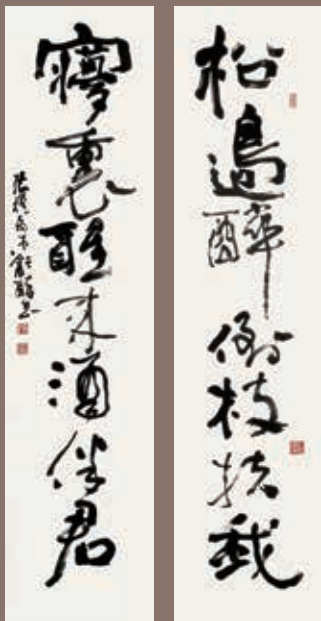 松邊醉倒枝扶我
夢裏醒來酒伴君